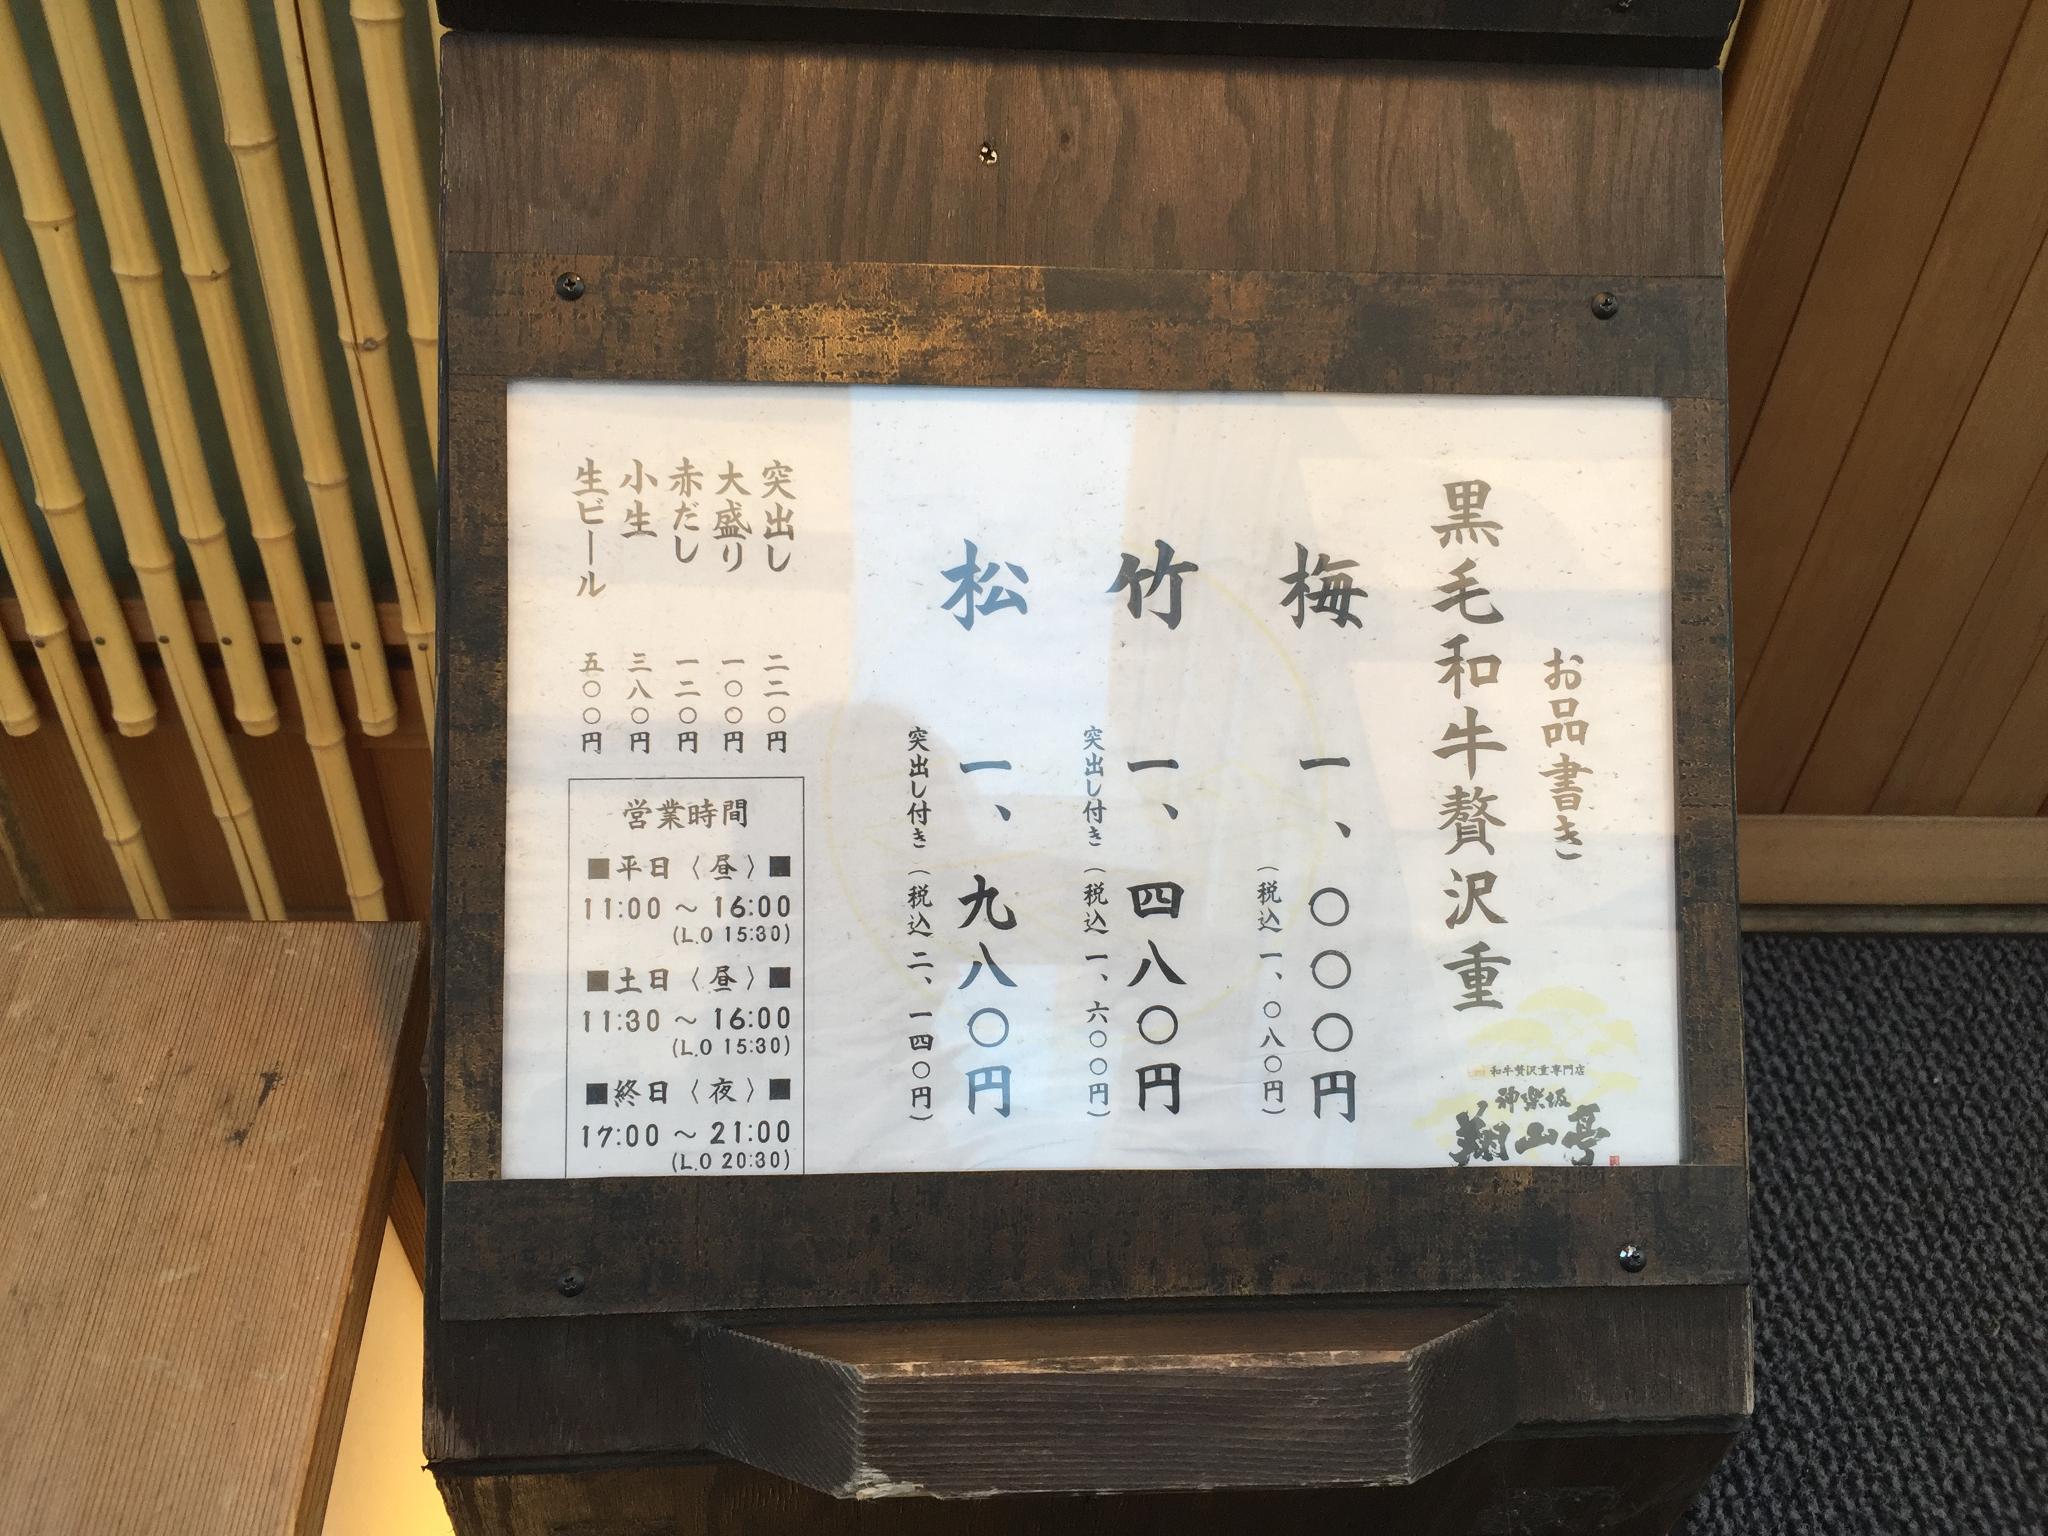 お品書き
黒毛和牛贅沢重
梅 一、〇〇〇円
(税込 一、〇八〇円)
竹 一、四八〇円
突出し付き (税込 一、六〇〇円)
松 一、九八〇円
突出し付き (税込 二、一四〇円)
突出し 二二〇円
大盛り 一〇〇円
赤だし 一二〇円
小生 三八〇円
生ビール 五〇〇円
営業時間
■平日〈昼〉■
11:00 ～ 16:00
(L.O 15:30)
■土日〈昼〉■
11:30 ～ 16:00
(L.O 15:30)
■終日〈夜〉■
17:00 ～ 21:00
(L.O 20:30)
和牛贅沢重専門店
神楽坂
翔山亭